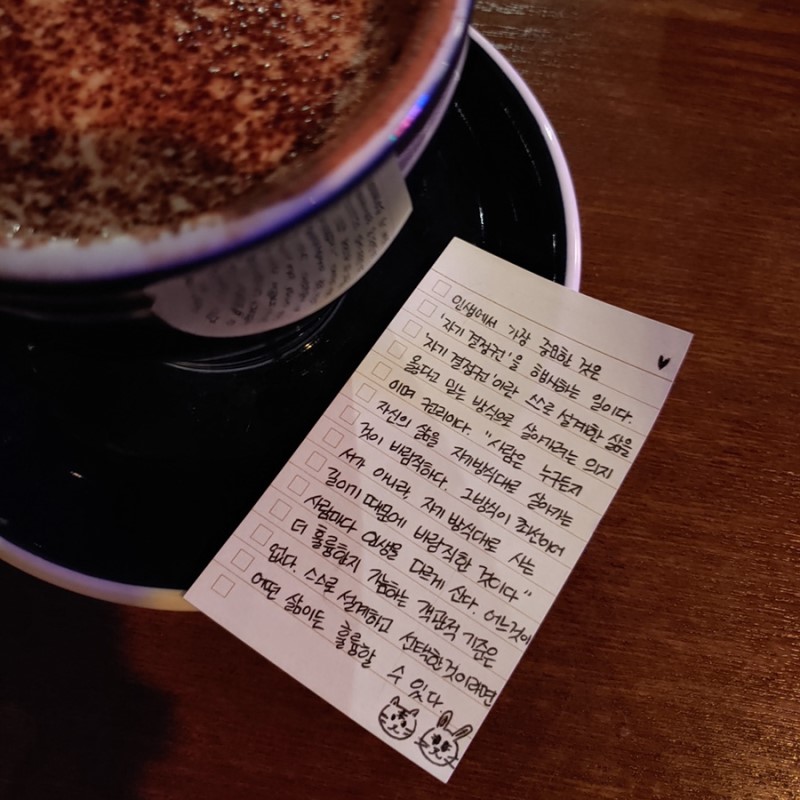 인생에서 가장 중요한 것은
'자기 결정권'을 행사하는 일이다.
'자기 결정권'이란 스스로 설계한 삶을
옳다고 믿는 방식으로 살아가려는 의지
이며 권리이다. "사람은 누구든지
자신의 삶을 자기방식대로 살아가는
것이 바람직하다. 그방식이 최선이어
서가 아니라, 자기 방식대로 사는
길이기 때문에 바람직한 것이다"
사람마다 인생을 다르게 산다. 어느것이
더 훌륭한지 가늠하는 객관적 기준은
없다. 스스로 설계하고 선택한것이라면
어떤 삶이든 훌륭할 수 있다.